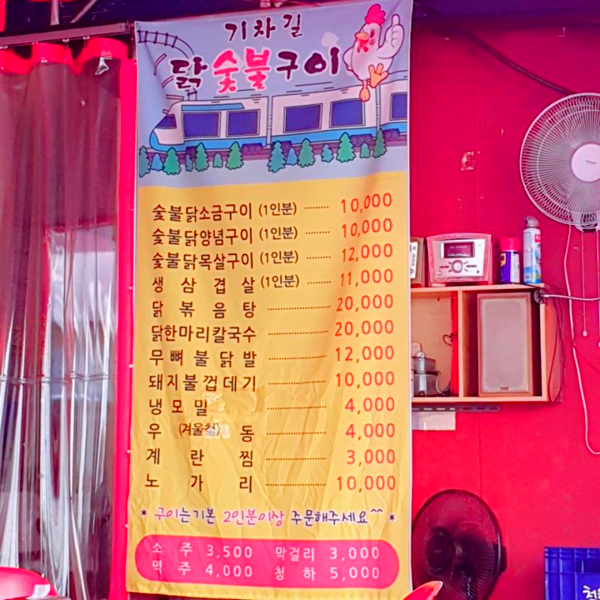 기차길
닭숯불구이
숯불닭소금구이 (1인분) ········ 10,000
숯불닭양념구이 (1인분) ········ 10,000
숯불닭목살구이 (1인분) ········ 12,000
생삼겹살 (1인분) ········ 11,000
닭볶음탕 ········ 20,000
닭한마리칼국수 ········ 20,000
무뼈불닭발 ········ 12,000
돼지불껍데기 ········ 10,000
냉모밀 ········ 4,000
우(겨울철)동 ········ 4,000
계란찜 ········ 3,000
노가리 ········ 10,000
* 구이는기본 2인분이상 주문해주세요^^ *
소주 3,500 막걸리 3,000
맥주 4,000 청하 5,000